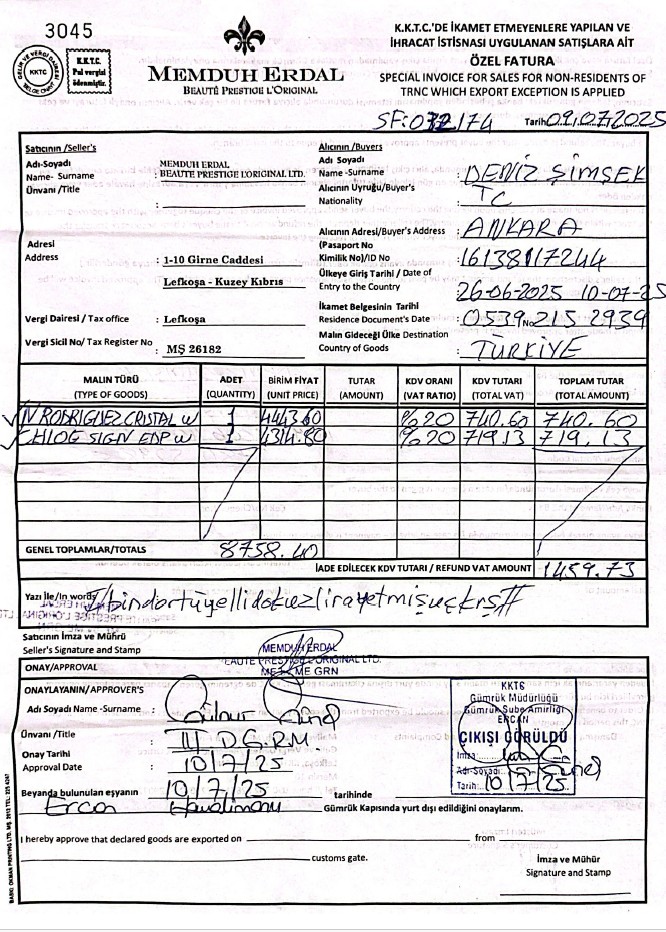 3045
KKTC
K.K.T.C.
Pul vergisi
ödenmiştir.
MEMDUH ERDAL
BEAUTÉ PRESTIGE L'ORIGINAL
K.K.T.C.'DE İKAMET ETMEYENLERE YAPILAN VE
İHRACAT İSTİSNASI UYGULANAN SATIŞLARA AİT
ÖZEL FATURA
SPECIAL INVOICE FOR SALES FOR NON-RESIDENTS OF
TRNC WHICH EXPORT EXCEPTION IS APPLIED
SF:032174 Tarih 09.07.2025
Satıcının /Seller's
Adı-Soyadı
Name- Surname : MEMDUH ERDAL
BEAUTE PRESTIGE L'ORIGINAL LTD.
Ünvanı /Title :
Adresi
Address : 1-10 Girne Caddesi
Lefkoşa - Kuzey Kıbrıs
Vergi Dairesi / Tax office : Lefkoşa
Vergi Sicil No/ Tax Register No : MŞ 26182
Alıcının /Buyers
Adı Soyadı
Name -Surname : DENİZ ŞİMŞEK
Alıcının Uyruğu/Buyer's
Nationality : TC
Alıcının Adresi/Buyer's Address : ANKARA
(Pasaport No
Kimilik No)/ID No : 16138117244
Ülkeye Giriş Tarihi / Date of
Entry to the Country 26-06-2025 10-07-25
İkamet Belgesinin Tarihi
Residence Document's Date : 0539 No 215 2939
Malın Gideceği Ülke Destination
Country of Goods : TÜRKİYE
MALIN TÜRÜ (TYPE OF GOODS) ADET (QUANTITY) BİRİM FİYAT (UNIT PRICE) TUTAR (AMOUNT) KDV ORANI (VAT RATIO) KDV TUTARI (TOTAL VAT) TOPLAM TUTAR (TOTAL AMOUNT)
N RODRIGUEZ CRISTAL W 1 4443.60 %20 740.60 740.60
CHLOE SIGN EDP W 1 4314.80 %20 719.13 719.13
GENEL TOPLAMLAR/TOTALS 8758.40
İADE EDİLECEK KDV TUTARI / REFUND VAT AMOUNT 1459.73
Yazı İle/In words // bindörtüyellidokuzlirayetmişüçkrş //
Satıcının İmza ve Mührü
Seller's Signature and Stamp
MEMDUH ERDAL
BEAUTE PRESTIGE L'ORIGINAL LTD.
ONAY/APPROVAL
ONAYLAYANIN/APPROVER'S
Adı Soyadı Name -Surname :
Ünvanı /Title :
Onay Tarihi
Approval Date : 10/7/25
Beyanda bulunulan eşyanın 10/7/25 tarihinde
Ercan Havalimanı Gümrük Kapısında yurt dışı edildiğini onaylarım.
KKTC
Gümrük Müdürlüğü
Gümrük Şube Amirliği
ERCAN
ÇIKIŞI GÖRÜLDÜ
İmza:
Adı-Soyadı:
Tarih: 10/7/25
I hereby approve that declared goods are exported on from
customs gate.
İmza ve Mühür
Signature and Stamp